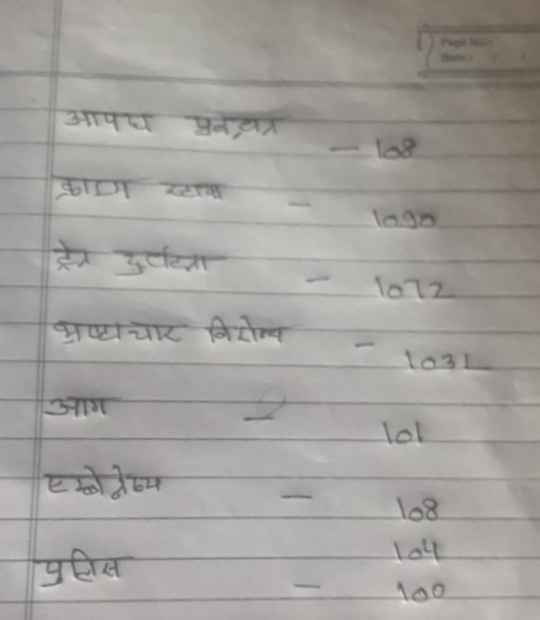 Page No.:
Date: / /
आपदा प्रबन्धन - 108
क्राइम स्टापर - 1090
ट्रेन दुर्घटना - 1072
भ्रष्टाचार विरोध - 1031
आग - 101
एम्बुलेन्स - 108
104
पुलिस - 100